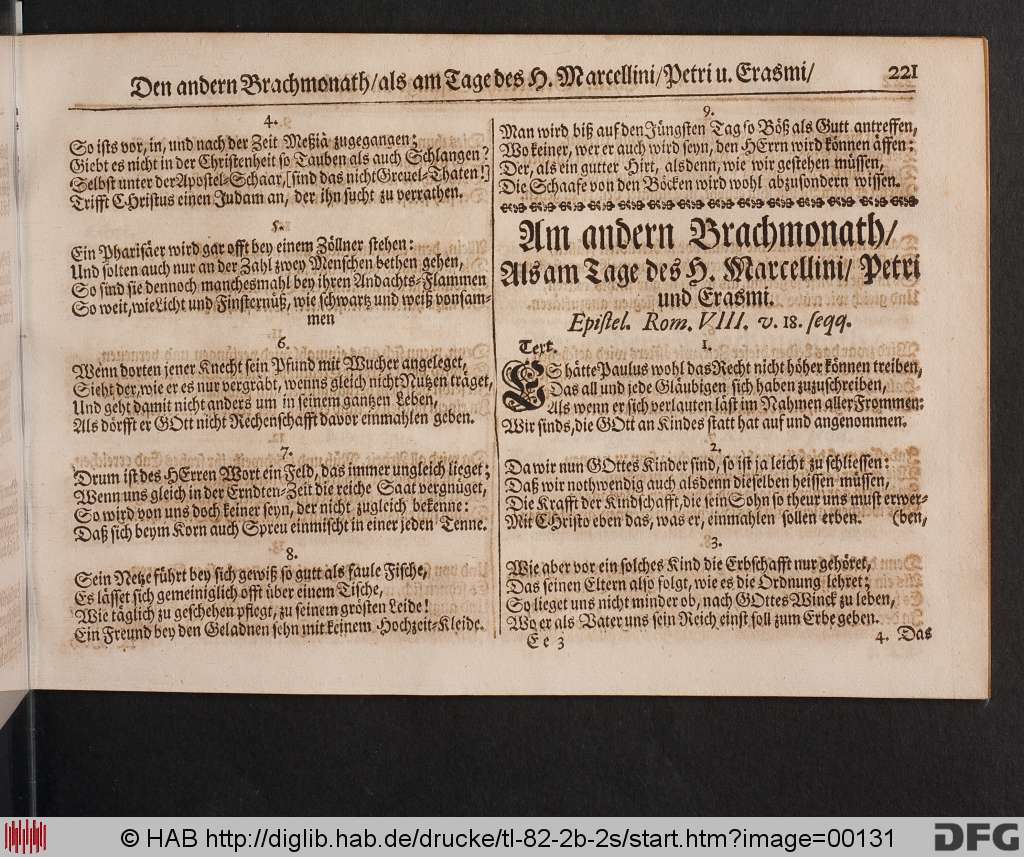 Den andern Brachmonath/als am Tage des H. Marcellini/Petri u. Erasmi/ 221
4.
So ists vor, in, und nach der Zeit Meßiä zugegangen:
Giebt es nicht in der Christenheit so Tauben als auch Schlangen?
Selbst unter der Apostel-Schaar, [sind das nicht Greuel-Thaten!]
Trifft CHristus einen Judam an, der ihn sucht zu verrathen.
5.
Ein Pharisäer wird gar offt bey einem Zöllner stehen:
Und solten auch nur an der Zahl zwey Menschen bethen gehen,
So sind sie dennoch manchesmahl bey ihren Andachts-Flammen
So weit, wie Licht und Finsternüß, wie schwartz und weiß vonsam-
men
6.
Wenn dorten jener Knecht sein Pfund mit Wucher angeleget,
Sieht der, wie er es nur vergräbt, wenns gleich nicht Nutzen träget,
Und geht damit nicht anders um in seinem gantzen Leben,
Als dörfft er GOtt nicht Rechenschafft davor einmahlen geben.
7.
Drum ist des HErren Wort ein Feld, das immer ungleich lieget;
Wenn uns gleich in der Erndten-Zeit die reiche Saat vergnüget,
So wird von uns doch keiner seyn, der nicht zugleich bekenne:
Daß sich beym Korn auch Spreu einmischt in einer jeden Tenne.
8.
Sein Netze führt bey sich gewiß so gutt als faule Fische,
Es lässet sich gemeiniglich offt über einem Tische,
Wie täglich zu geschehen pflegt, zu seinem grösten Leide!
Ein Freund bey den Geladnen sehn mit keinem Hochzeit-Kleide.
9.
Man wird biß auf den Jüngsten Tag so Böß als Gutt antreffen,
Wo keiner, wer er auch wird seyn, den HErrn wird können äffen:
Der, als ein gutter Hirt, alsdenn, wie wir gestehen müssen,
Die Schaafe von den Böcken wird wohl abzusondern wissen.
Am andern Brachmonath/
Als am Tage des H. Marcellini/ Petri
und Erasmi.
Epistel. Rom. VIII. v. 18. seqq.
Text. 1.
ES hätte Paulus wohl das Recht nicht höher können treiben,
Das all und jede Gläubigen sich haben zuzuschreiben,
Als wenn er sich verlauten läst im Nahmen aller Frommen:
Wir sinds, die GOtt an Kindes statt hat auf und angenommen.
2.
Da wir nun GOttes Kinder sind, so ist ja leicht zu schliessen:
Daß wir nothwendig auch alsdenn dieselben heissen müssen,
Die Krafft der Kindschafft, die sein Sohn so theur uns must erwer-
Mit CHristo eben das, was er, einmahlen sollen erben. (ben,
3.
Wie aber vor ein solches Kind die Erbschafft nur gehöret,
Das seinen Eltern also folgt, wie es die Ordnung lehret:
So lieget uns nicht minder ob, nach GOttes Winck zu leben,
Wo er als Vater uns sein Reich einst soll zum Erbe geben.
Ee 3 4. Das
© HAB http://diglib.hab.de/drucke/tl-82-2b-2s/start.htm?image=00131 DFG